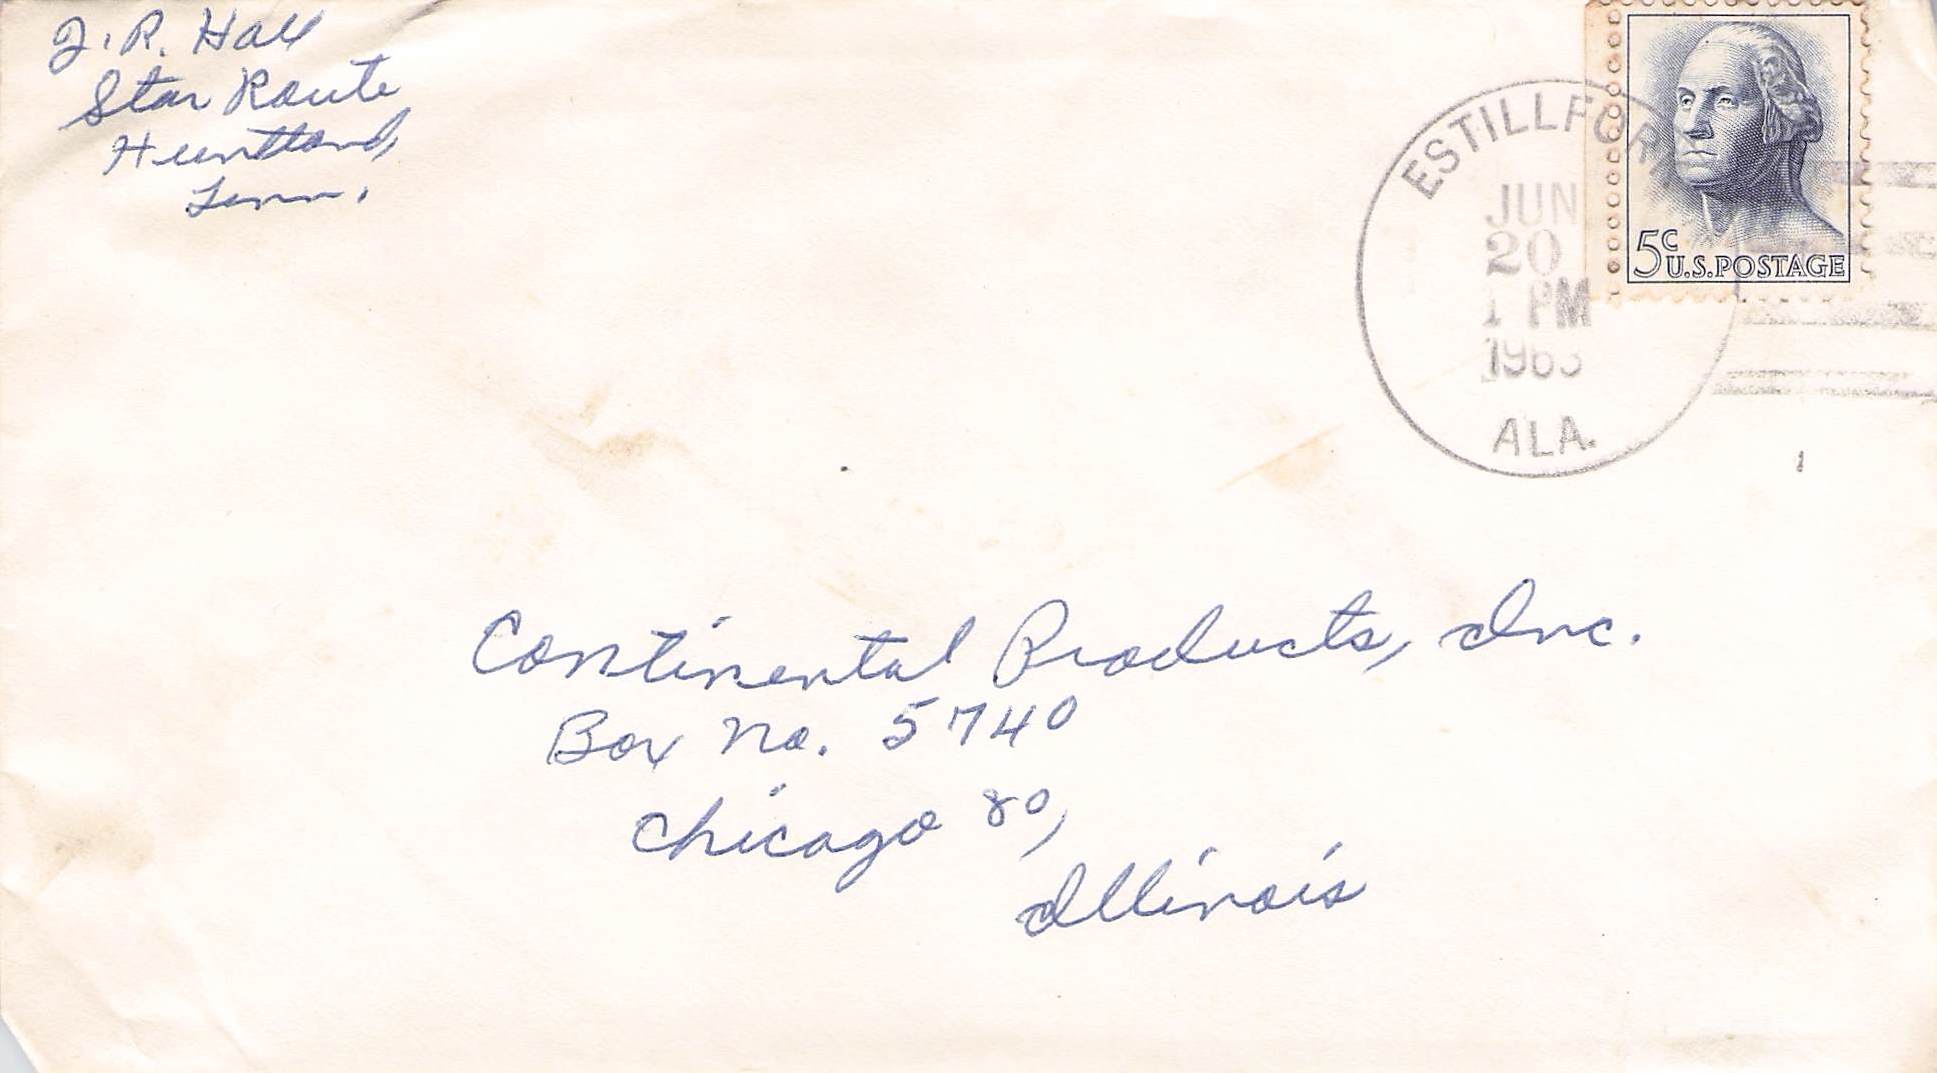 J. R. Hall
Star Route
Huntland,
Tenn.
ESTILLFORK
JUN
20
1 PM
1963
ALA.
5c
U.S.POSTAGE
Continental Products, Inc.
Box No. 5740
Chicago 80,
Illinois